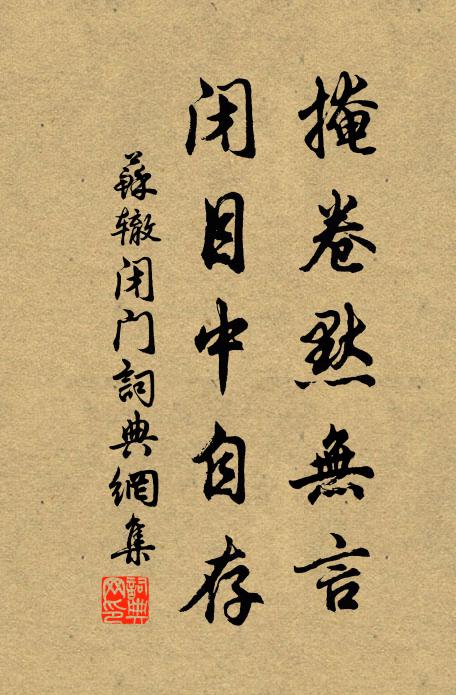 掩卷默無言
闭目中自存
蘇辙闭门詞典網集
詞典网印